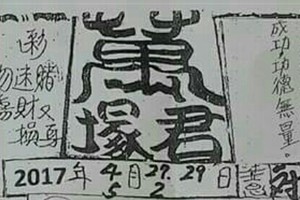 成功功德無量。
萬
塚君
彩
勿迷賭
傷財又
損尊
2017年4月27.29日
5 2